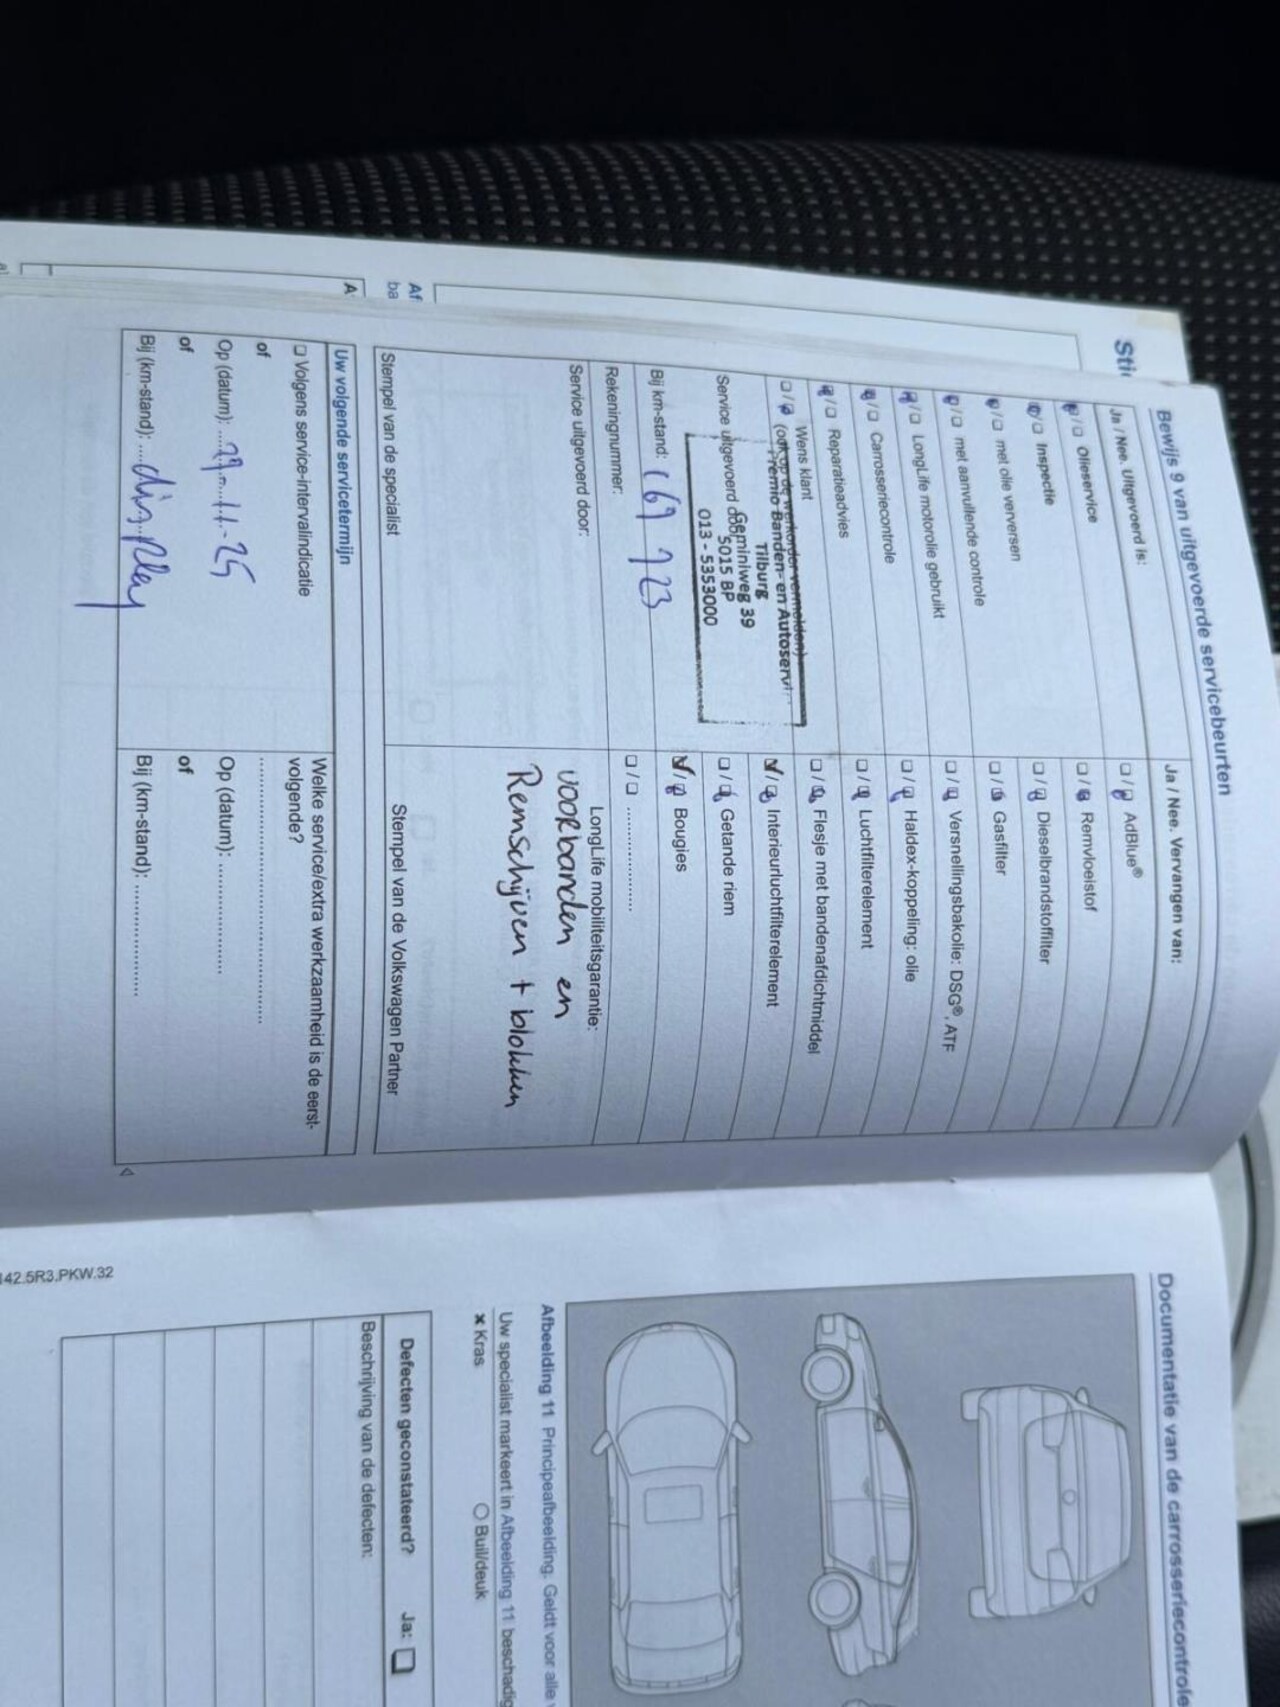 Sti
Af
ba
A
Bewijs 9 van uitgevoerde servicebeurten
Ja / Nee. Uitgevoerd is:
Olieservice
Inspectie
met olie verversen
met aanvullende controle
LongLife motorolie gebruikt
Carrosseriecontrole
Reparatieadvies
Wens klant
(ook op de werkorder vermelden)
Premio Banden- en Autoservi
Tilburg
Geminiweg 39
Service uitgevoerd door
5015 BP
013 - 5353000
Bij km-stand: 169 723
Rekeningnummer:
Service uitgevoerd door:
Stempel van de specialist
Ja / Nee. Vervangen van:
AdBlue®
Remvloeistof
Dieselbrandstoffilter
Gasfilter
Versnellingsbakolie: DSG®, ATF
Haldex-koppeling: olie
Luchtfilterelement
Flesje met bandenafdichtmiddel
Interieurluchtfilterelement
Getande riem
Bougies
LongLife mobiliteitsgarantie:
voorbanden en
Remschijven + blokken
Stempel van de Volkswagen Partner
Uw volgende servicetermijn
Volgens service-intervalindicatie
of
Op (datum): 29-11-25
of
Bij (km-stand): display
Welke service/extra werkzaamheid is de eerst-
volgende?
Op (datum):
of
Bij (km-stand):
142.5R3.PKW.32
Documentatie van de carrosseriecontrole
Afbeelding 11 Principeafbeelding. Geldt voor alle
Uw specialist markeert in Afbeelding 11 beschadig
× Kras
○ Buil/deuk
Defecten geconstateerd? Ja:
Beschrijving van de defecten: